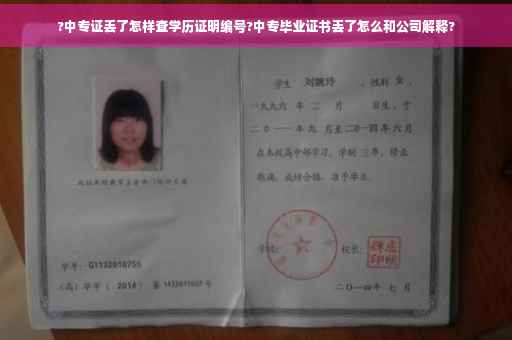 ?中专证丢了怎样查学历证明编号?中专毕业证书丢了怎么和公司解释?
学生 刘婉玲 ,性别 女 ,
一九九六 年 二 月 日生,于
二〇一一 年 九 月至 二〇一四 年 六 月
在本校高中部学习,学制 三 年,修业
期满,成绩合格,准予毕业。
学号: G1132010755
(高)毕字( 2014 )第 1432011007 号
学校: 校长:
二〇一四年 七 月